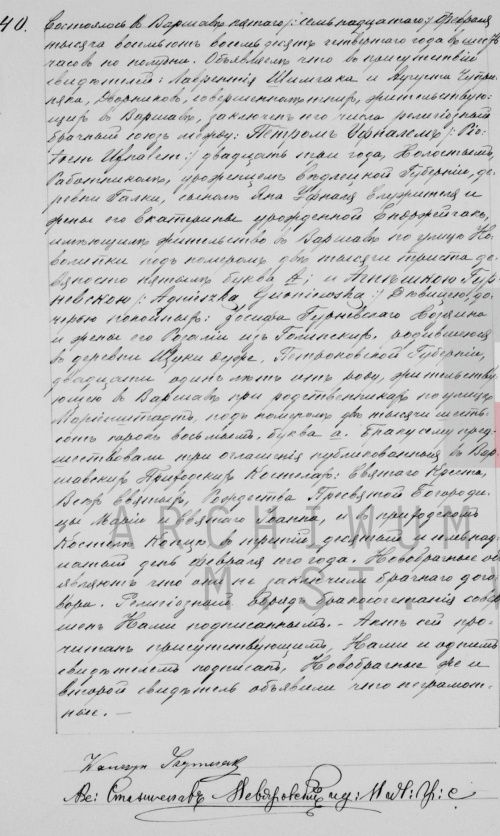 40.
Состоялось въ Варшавѣ пятаго /: семьнадцатаго :/ Февраля
тысяча восемьсотъ восемьдесятъ четвертаго года въ шесть
часовъ по полудни. Объявляемъ что въ присутствіи
свидѣтелей: Лаврентія и Августа
Дворниковъ, совершеннолѣтнихъ, жительствую-
щихъ въ Варшавѣ, заключенъ сего числа религіозный
брачный союзъ между: Петромъ /: Pio-
trem :/ двадцать года, Холостымъ
Работникомъ, урожденцемъ Сѣдлецкой Губерніи, де-
ревни Галки, сыномъ Яна и
жены его Екатерины урожденной
имѣющимъ жительство въ Варшавѣ по улицѣ Но-
волипки подъ номеромъ двѣ тысячи триста де-
вяносто пятымъ буква А; и Агнѣшкою Гур-
невскою /: Agnieszka :/ Дѣвицею до-
черью покойныхъ: Іосифа Гурневскаго
и жены его Розаліи изъ родившеюся
въ деревни Петроковской Губерніи,
двадцати одинъ лѣтъ отъ роду, жительству-
ющею въ Варшавѣ при родственникахъ по улицѣ
Маріенштадтъ, подъ номеромъ двѣ тысячи шесть-
сотъ сорокъ восьмымъ, буква а. Браку сему пред-
шествовали три оглашенія публикованныя въ Вар-
шавскихъ Приходскихъ Костелахъ: Святаго Креста,
Всѣхъ Святыхъ, Рождества Пресвятой Богороди-
цы Маріи и Святаго Іоанна, и въ приходскомъ
Костелѣ въ третій, десятый и семьнад-
цатый день Февраля сего года. Новобрачные объ-
являютъ что они не заключили брачнаго дого-
вора. Религіозный обрядъ бракосочетанія совер-
шенъ Нами подписанными. — Актъ сей про-
читанъ присутствующимъ, Нами и однимъ
свидѣтелемъ подписанъ, Новобрачные же и
второй свидѣтель объявили что неграмот-
ные. —
ARCHIWUM
M. ST.
Кс: Станиславъ